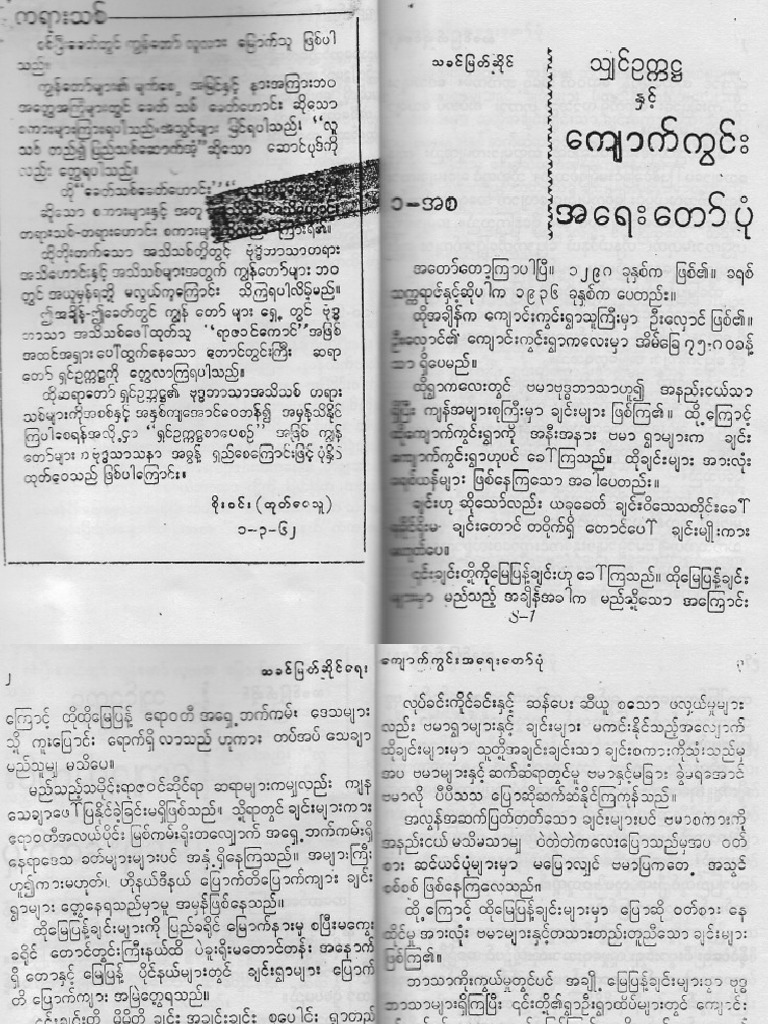 ကရားသစ်
ဝင်ပြီးခေတ်တွင် ကျွန်တော် လူလား မြောက်သူ ဖြစ်ပါ
သည်။
ကျွန်တော်များ၏ မျက်စေ့ အမြင်နှင့် နားအကြားဘဝ
အတွေ့အကြုံများတွင် ခေတ် သစ် ခေတ်ဟောင်း ဆိုသော
စကားများကြားရပါသည်။ အသွင်များ မြင်ရပါသည်။ “လူ
သစ် တည်၍ ပြည်သစ်ဆောက်အံ့” ဆိုသော ဆောင်ပုဒ်ကို
လည်း တွေ့ရပါသည်။
ထို “ခေတ်သစ်ခေတ်ဟောင်း”
ဆိုသော စကားများနှင့် အတူ
တရားသစ်-တရားဟောင်း စကားများ
ထိုတိုးတက်သော အသိသစ်တို့တွင့် ဗုဒ္ဓဘာသာတရား
အသိဟောင်းနှင့် အသိသစ်များအတွက် ကျွန်တော်များ ဘဝ
တွင် အယူမှန်ရဘို့ မလွယ်ကူကြောင်း သိကြရပါလိမ့်မည်။
ဤအချိန်-ဤခေတ်တွင် ကျွန် တော် များ ရှေ့ တွင် ဗုဒ္ဓ
ဘာသာ အသိသစ်ဖေါ်ထုတ်သူ “ရာဇဝင်ကောင်” အဖြစ်
အထင်အရှား ပေါ်ထွက်နေသော တောင်တွင်းကြီး ဆရာ
တော် ရှင်ဥက္ကဋ္ဌကို တွေ့လာကြရပါသည်။
ထိုဆရာတော် ရှင်ဥက္ကဋ္ဌ၏ ဗုဒ္ဓဘာသာအသိသစ် တရား
သစ်များကိုအစစ်နှင့် အနှစ်ကျအောင်ဝေဘန်၍ အမှန်သိနိုင်
ကြပါစေရန်အလို့ငှာ “ရှင်ဥက္ကဋ္ဌစာပေစဉ်” အဖြစ် ကျွန်
တော်များ ဗုဒ္ဓသာသနာ အဓွန့် ရှည်စေကြောင်းဖြင့် ပုံနှိပ်
ထုတ်ဝေသည် ဖြစ်ပါကြောင်း။
စိုးစင်း (ထုတ်ဝေသူ)
၁-၃-၆၂
သခင်မြတ်ဆိုင်
သျှင်ဥက္ကဋ္ဌ
နှင့်
ကျောက်ကွင်း
အရေးတော်ပုံ
၁-အစ
အတော်တော့ကြာပါပြီ။ ၁၂၉၈ ခုနှစ်က ဖြစ်၏။ ခရစ်
သက္ကရာဇ်နှင့်ဆိုပါက ၁၉၃၆ ခုနှစ်က ပေတည်း။
ထိုအချိန်က ကျောင်းကွင်းရွာသူကြီးမှာ ဦးလှောင် ဖြစ်၏။
ဦးလှောင်၏ ကျောင်းကွင်းရွာကလေးမှာ အိမ်ခြေ ၇၅-၈၀ခန့်
သာ ရှိပေမည်။
ထိုရွာကလေးတွင် ဗမာဗုဒ္ဓဘာသာဟူ၍ အနည်းငယ်သာ
ရှိပြီး ကျန်အများစုကြီးမှာ ချင်းများ ဖြစ်ကြ၏။ ထို့ကြောင့်
ထိုကျောက်ကွင်းရွာကို အနီးအနား ဗမာ ရွာများက ချင်း
ကျောက်ကွင်းရွာဟုပင် ခေါ်ကြသည်။ ထိုချင်းများ အားလုံး
ခရစ်ယန်များ ဖြစ်နေကြသော အခါပေတည်း။
ချင်းဟု ဆိုသော်လည်း ယခုခေတ် ချင်းဝိသေသတိုင်းခေါ်
ချင်းတောင် တဝိုက်ရှိ တောင်ပေါ် ချင်းမျိုးကား
မဟုတ်ပေ။
၎င်းချင်းတို့ကိုမြေပြန့်ချင်းဟု ခေါ်ကြသည်။ ထိုမြေပြန့်ချင်း
များမှာ မည်သည့် အချိန်အခါက မည်သို့သော အကြောင်း
S-1
၂
သခင်မြတ်ဆိုင်ရေး
ကြောင့် ထိုထိုမြေပြန့် ဧရာဝတီ အရှေ့ဘက်ကမ်း ဒေသများ
သို့ ကူးပြောင်း ရောက်ရှိ လာသည် ဟူကား တပ်အပ် သေချာ
မည်သူမျှ မသိပေ။
မည်သည့်သမိုင်းရာဇဝင်ဆိုင်ရာ ဆရာများကမျှလည်း ကျန
သေချာဖေါ်ပြနိုင်ခဲ့ခြင်းမရှိဖြစ်သည်။ သို့ရာတွင် ချင်းများကား
ဧရာဝတီအလယ်ပိုင်း မြစ်ကမ်းရိုးတလျှောက် အရှေ့ဘက်ကမ်းရှိ
နေရာဒေသ ခတ်များများပင် အနှံ့ ရှိနေကြသည်။ အများကြီး
ဟူ၍ကားမဟုတ်၊ ဟိုနယ်ဒီနယ် ပြောက်တိပြောက်ကျား ချင်း
ရွာများ တွေ့နေရသည်မှာမူ အမှန်ဖြစ်နေသည်။
ထိုမြေပြန့်ချင်းများကို ပြည်ခရိုင် မြောက်နားမှ စပြီးမကွေး
ခရိုင် တောင်တွင်းကြီးနယ်ထိ ပဲခူးရိုးမတောင်တန်း အနောက်
ရှိ တောနှင့် မြေပြန့် ပိုင်နယ်များတွင် ချင်းရွာများ ပြောက်
တိ ပြောက်ကျား အမြဲတွေ့ရသည်။
၎င်းချင်းတို့ မိမိတို့ ချင်း အချင်းချင်း စုပေါင်း ရွာတည်
ကျောက်ကွင်းအရေးတော်ပုံ
၃
လုပ်ခင်းကိုင်ခင်းနှင့် ဆန်ပေး ဆီယူ စသော ဖလှယ်မှုများ
လည်း ဗမာရွာများနှင့် ချင်းများ မကင်းနိုင်သည့်အလျောက်
ထိုချင်းများမှာ သူတို့အချင်းချင်းသာ ချင်းစကားကိုသုံးသည်မှ
အပ ဗမာများနှင့် ဆက်ဆံရာတွင်မူ ဗမာနှင့်မခြား ခွဲမရအောင်
ဗမာလို ပီပီသသ ပြောဆိုဆက်ဆံနိုင်ကြကုန်သည်။
အလွန်အဆက်ပြတ်တတ်သော ချင်းများပင် ဗမာစကားကို
အနည်းငယ် မသိမသာမျှ ဝဲတဲတဲကလေးပြောသည်မှအပ ဝတ်
စား ဆင်ယင်ပုံများမှာ မပြောလျှင် ဗမာပြကတေ့ အသွင်
စစ်စစ် ဖြစ်နေကြလေသည်။
ထို့ကြောင့် ထိုမြေပြန့်ချင်းများမှာ ပြောဆို ဝတ်စား နေ
ထိုင်မှု အားလုံး ဗမာများနှင့်တသားတည်းတူညီသော ချင်းများ
ဖြစ်ကြ၏။
ဘာသာကိုးကွယ်မှုတွင်ပင် အချို့ မြေပြန့်ချင်းများမှာ ဗုဒ္ဓ
ဘာသာများရှိကြပြီး ၎င်းတို့၏ရွာဦးရွာထိပ်များတွင် ကျောင်း